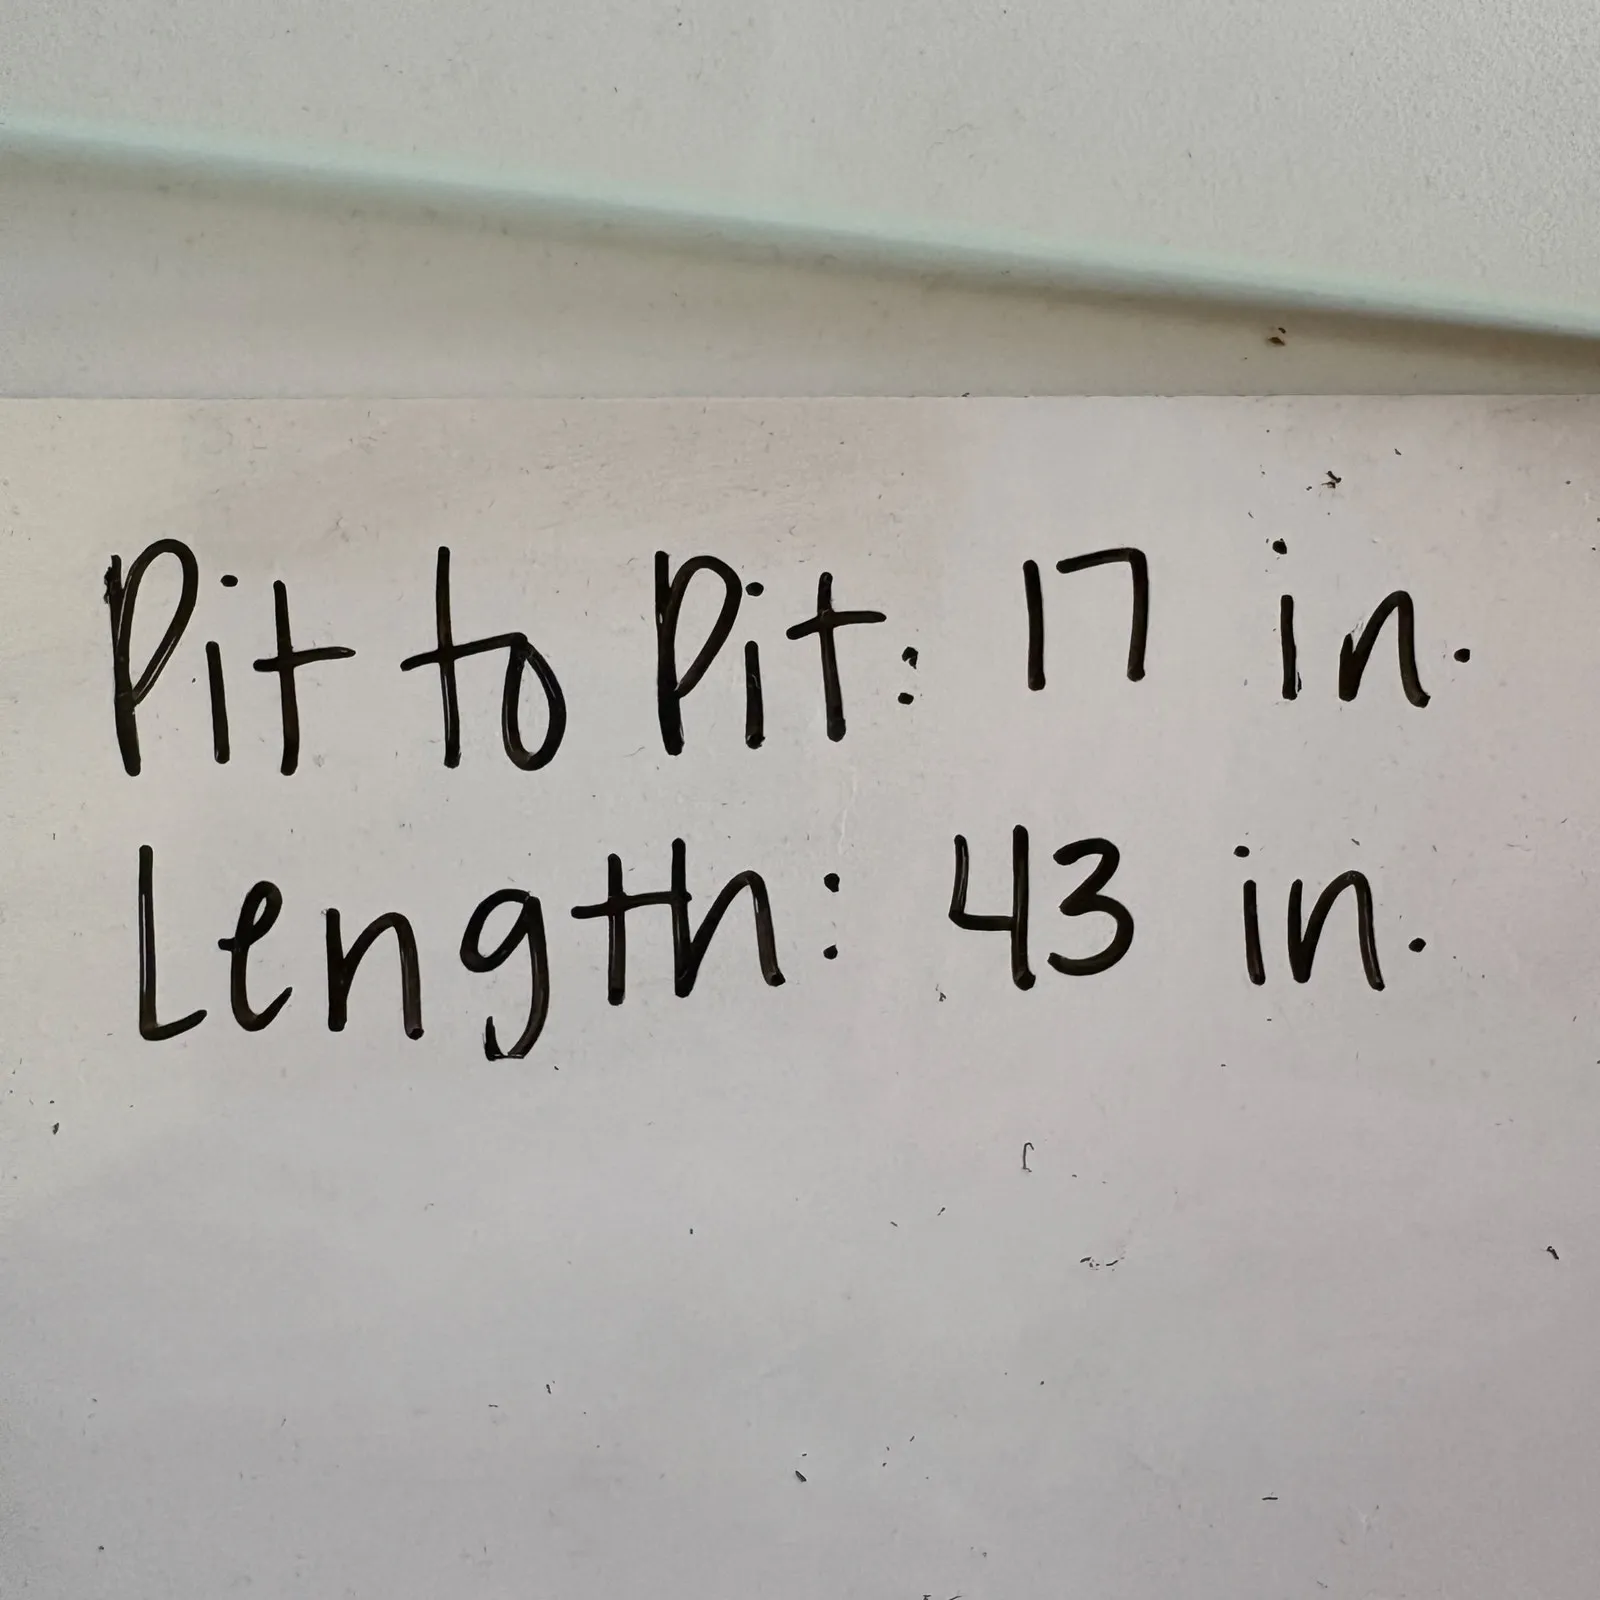 Pit to Pit: 17 in.
Length: 43 in.